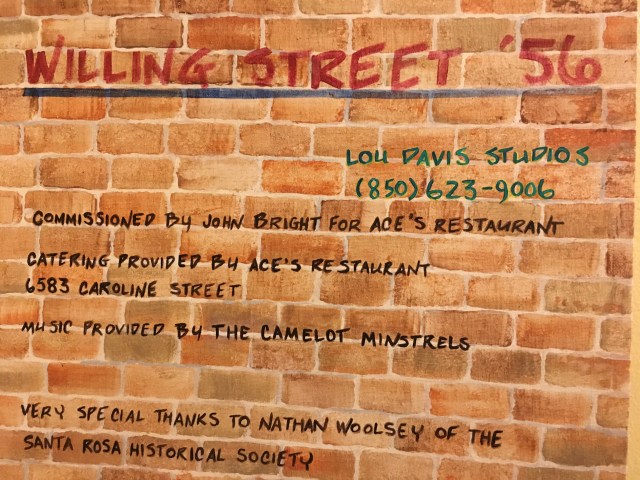 WILLING STREET '56
LOU DAVIS STUDIOS
(850) 623-9006
COMMISSIONED BY JOHN BRIGHT FOR ACE'S RESTAURANT
CATERING PROVIDED BY ACE'S RESTAURANT
6583 CAROLINE STREET
MUSIC PROVIDED BY THE CAMELOT MINSTRELS
VERY SPECIAL THANKS TO NATHAN WOOLSEY OF THE
SANTA ROSA HISTORICAL SOCIETY